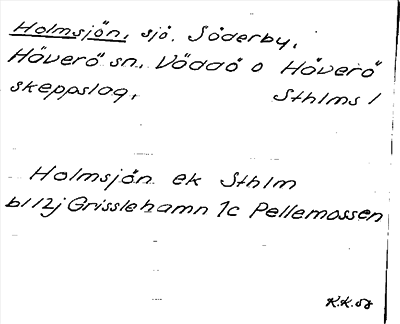 Holmsjön, sjö. Söderby,
Häverö sn., Väddö o Häverö
skeppslag, Sthlms l
Holmsjön ek Sthlm
bl 12j Grisslehamn 1c Pellemossen
K.K. 58